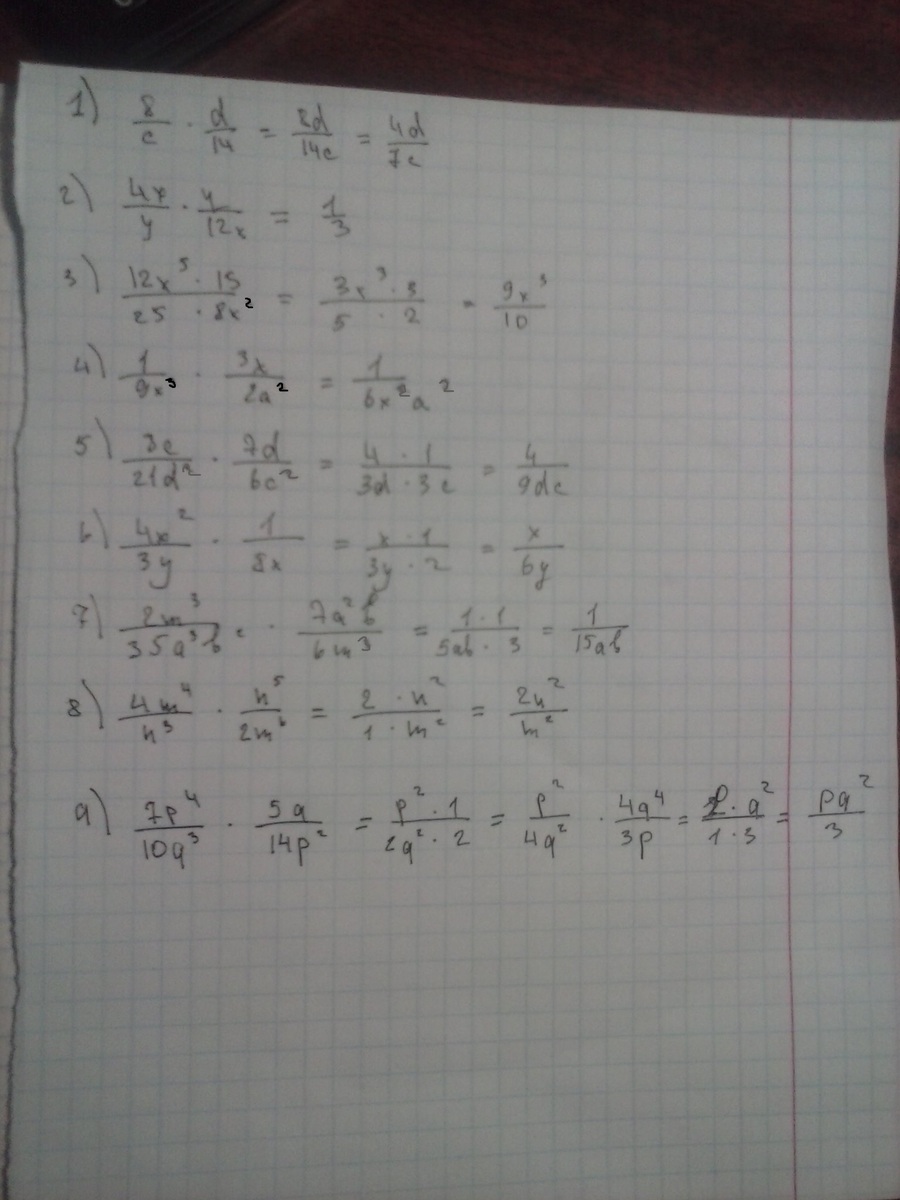 1) 8/c · d/14 = 8d/14c = 4d/7c
2) 4x/y · y/12x = 1/3
3) 12x⁵ · 15/25 · 8x² = 3x³ · 3/5 · 2 = 9x³/10
4) 1/9x³ · 3x/2a² = 1/6x²a²
5) 3c/21d² · 7d/6c² = 4 · 1/3d · 3c = 4/9dc
6) 4x²/3y · 1/8x = x · 1/3y · 2 = x/6y
7) 2m³/35a³b² · 7a²b/6m³ = 1 · 1/5ab · 3 = 1/15ab
8) 4m⁴/n³ · n⁵/2m⁶ = 2 · n²/1 · m² = 2n²/m²
9) 7p⁴/10q³ · 5q/14p² = p² · 1/2q² · 2 = p²/4q² · 4q⁴/3p = p · q²/1 · 3 = pq²/3